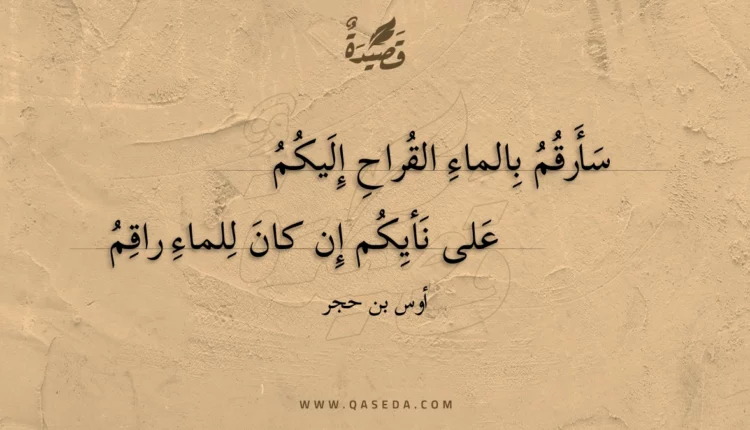 قَصِيْدَةٌ
سَأَرقُمُ بِالماءِ القُراحِ إِلَيكُمُ
عَلى نَأيِكُم إِن كانَ لِلماءِ راقِمُ
أوس بن حجر
WWW.QASEDA.COM